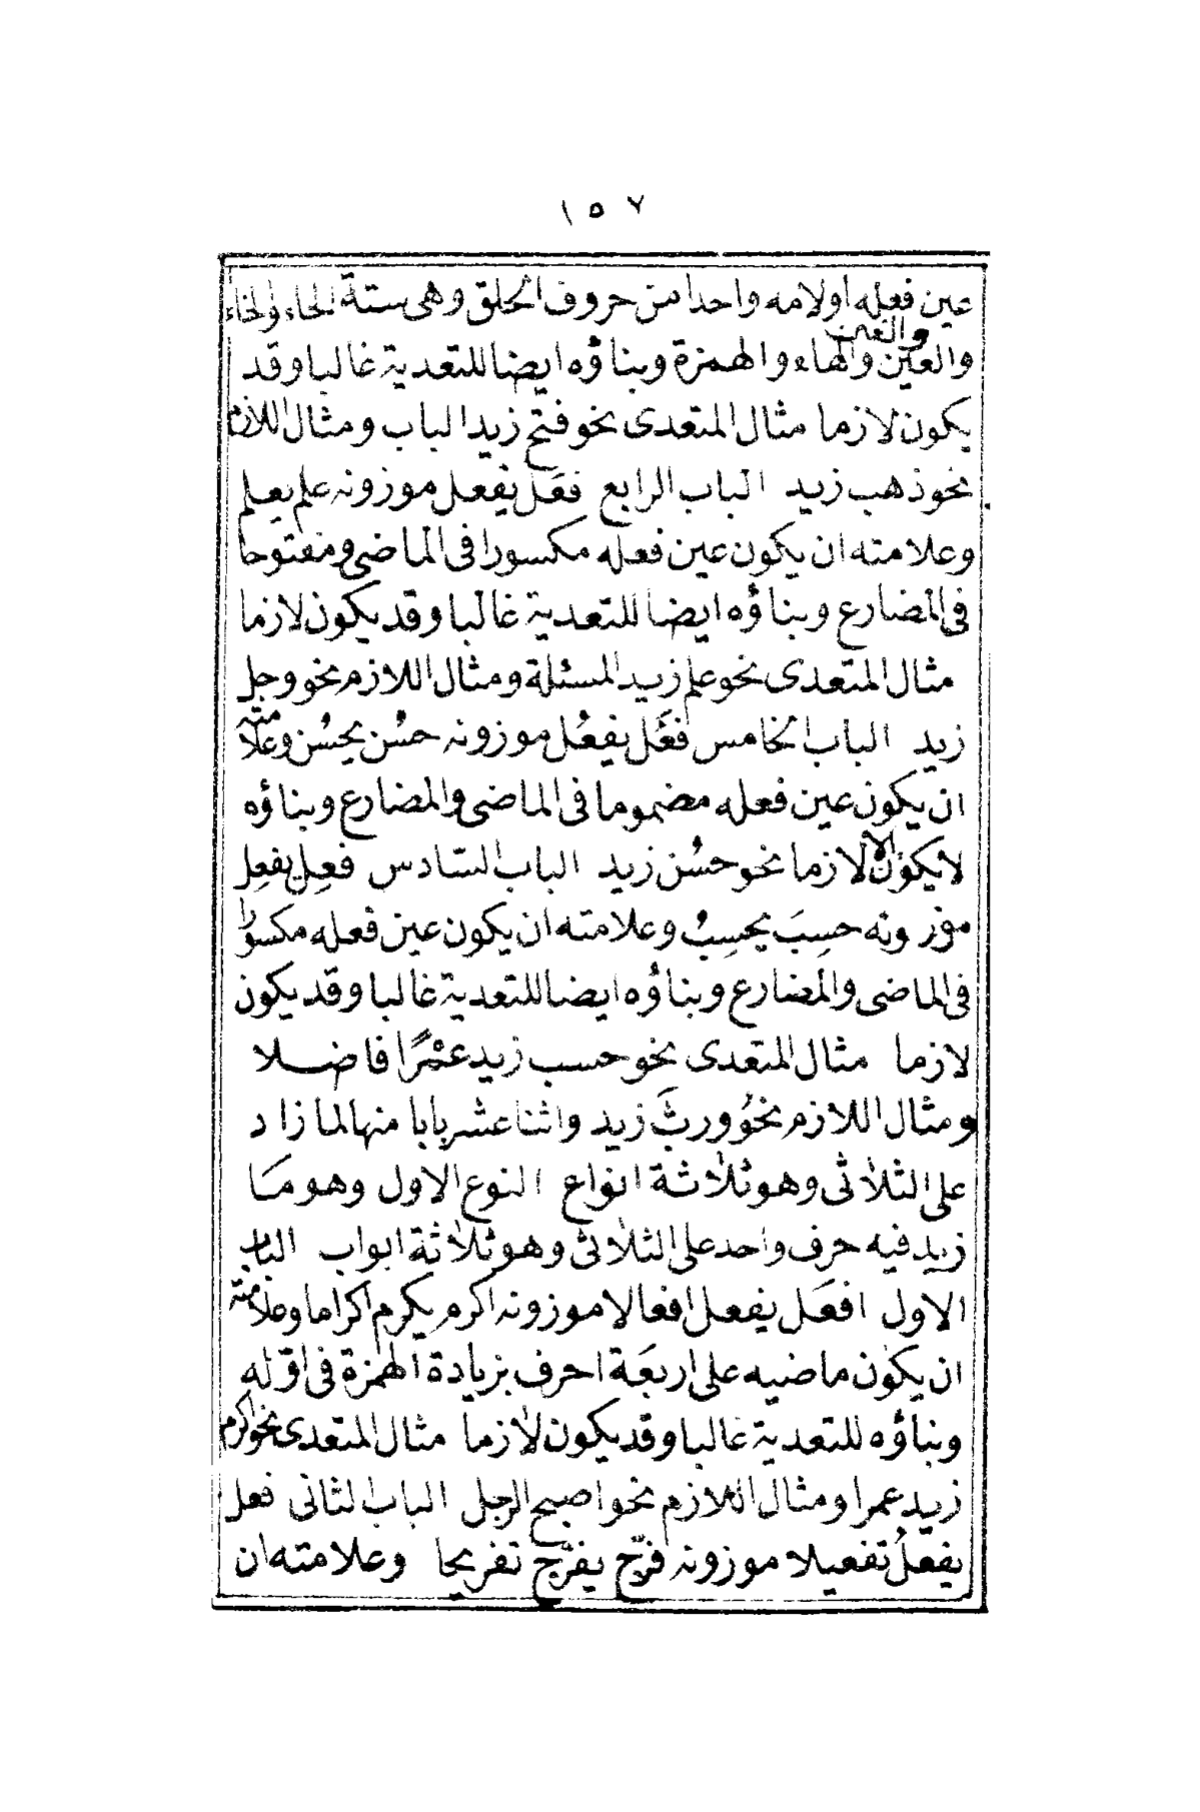 ١٥٧
عين فعله او لامه واحدا من حروف الحلق وهى ستة الحاء والخاء
والعين والغين والهاء والهمزة وبناؤه ايضا للتعدية غالبا وقد
يكون لازما مثال المتعدى نحو فتح زيد الباب ومثال اللازم
نحو ذهب زيد الباب الرابع فَعَل يفعل موزونه علم يعلم
وعلامته ان يكون عين فعله مكسورا فى الماضى ومفتوحا
فى المضارع وبناؤه ايضا للتعدية غالبا وقد يكون لازما
مثال المتعدى نحو علم زيد المسئلة ومثال اللازم نحو وجل
زيد الباب الخامس فَعَُل يفعُل موزونه حسُن يحسُن وعلامته
ان يكون عين فعله مضموما فى الماضى والمضارع وبناؤه
لا يكون الا لازما نحو حسُن زيد الباب السّادس فعِل يفعِل
موزونه حسِبَ يحسِبُ وعلامته ان يكون عين فعله مكسورا
فى الماضى والمضارع وبناؤه ايضا للتعدية غالبا وقد يكون
لازما مثال المتعدى نحو حسب زيد عمْرًا فاضلا
ومثال اللازم نحو ورثَ زيد واثنا عشر بابا منها لما زاد
على الثلاثى وهو ثلاثة انواع النوع الاول وهو مَا
زيد فيه حرف واحد على الثلاثى وهو ثلاثة ابواب الباب
الاول افعَل يفعل افعالا موزونه اكرم يكرم اكراما وعلامته
ان يكون ماضيه على اربعَة احرف بزيادة الهمزة فى اوّله
وبناؤه للتعدية غالبا وقد يكون لازما مثال المتعدى نحو اكرم
زيد عمرا ومثال اللازم نحو اصبح الرجل الباب الثانى فعل
يفعلُ تفعيلا موزونه فرّح يفرّح تفريحا وعلامته ان